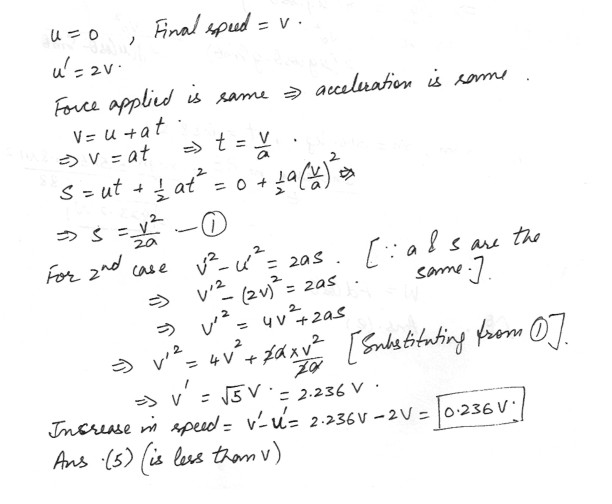 u = 0 , Final speed = v .
u' = 2v .
Force applied is same ⇒ acceleration is same .
v = u + at .
⇒ v = at ⇒ t = v/a .
S = ut + 1/2 at² = 0 + 1/2 a(v/a)²
⇒ S = v²/2a — ①
For 2nd case v'² - u'² = 2as . [∵ a & s are the same.]
⇒ v'² - (2v)² = 2as .
⇒ v'² = 4v² + 2as
⇒ v'² = 4v² + 2a × v²/2a [Substituting from ①].
⇒ v' = √5 v . = 2.236 v .
Increase in speed = v' - u' = 2.236v - 2v = 0.236 v .
Ans .(5) (is less than v)